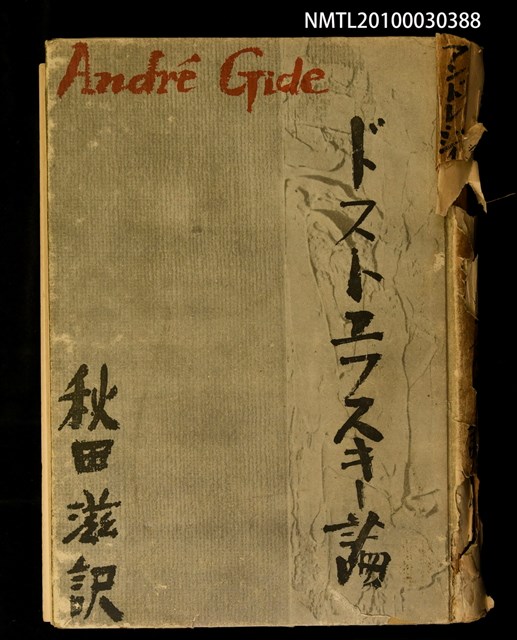 NMTL20100030388
André Gide
ドストエフスキー論
秋田滋訳
アンドレ・ジ